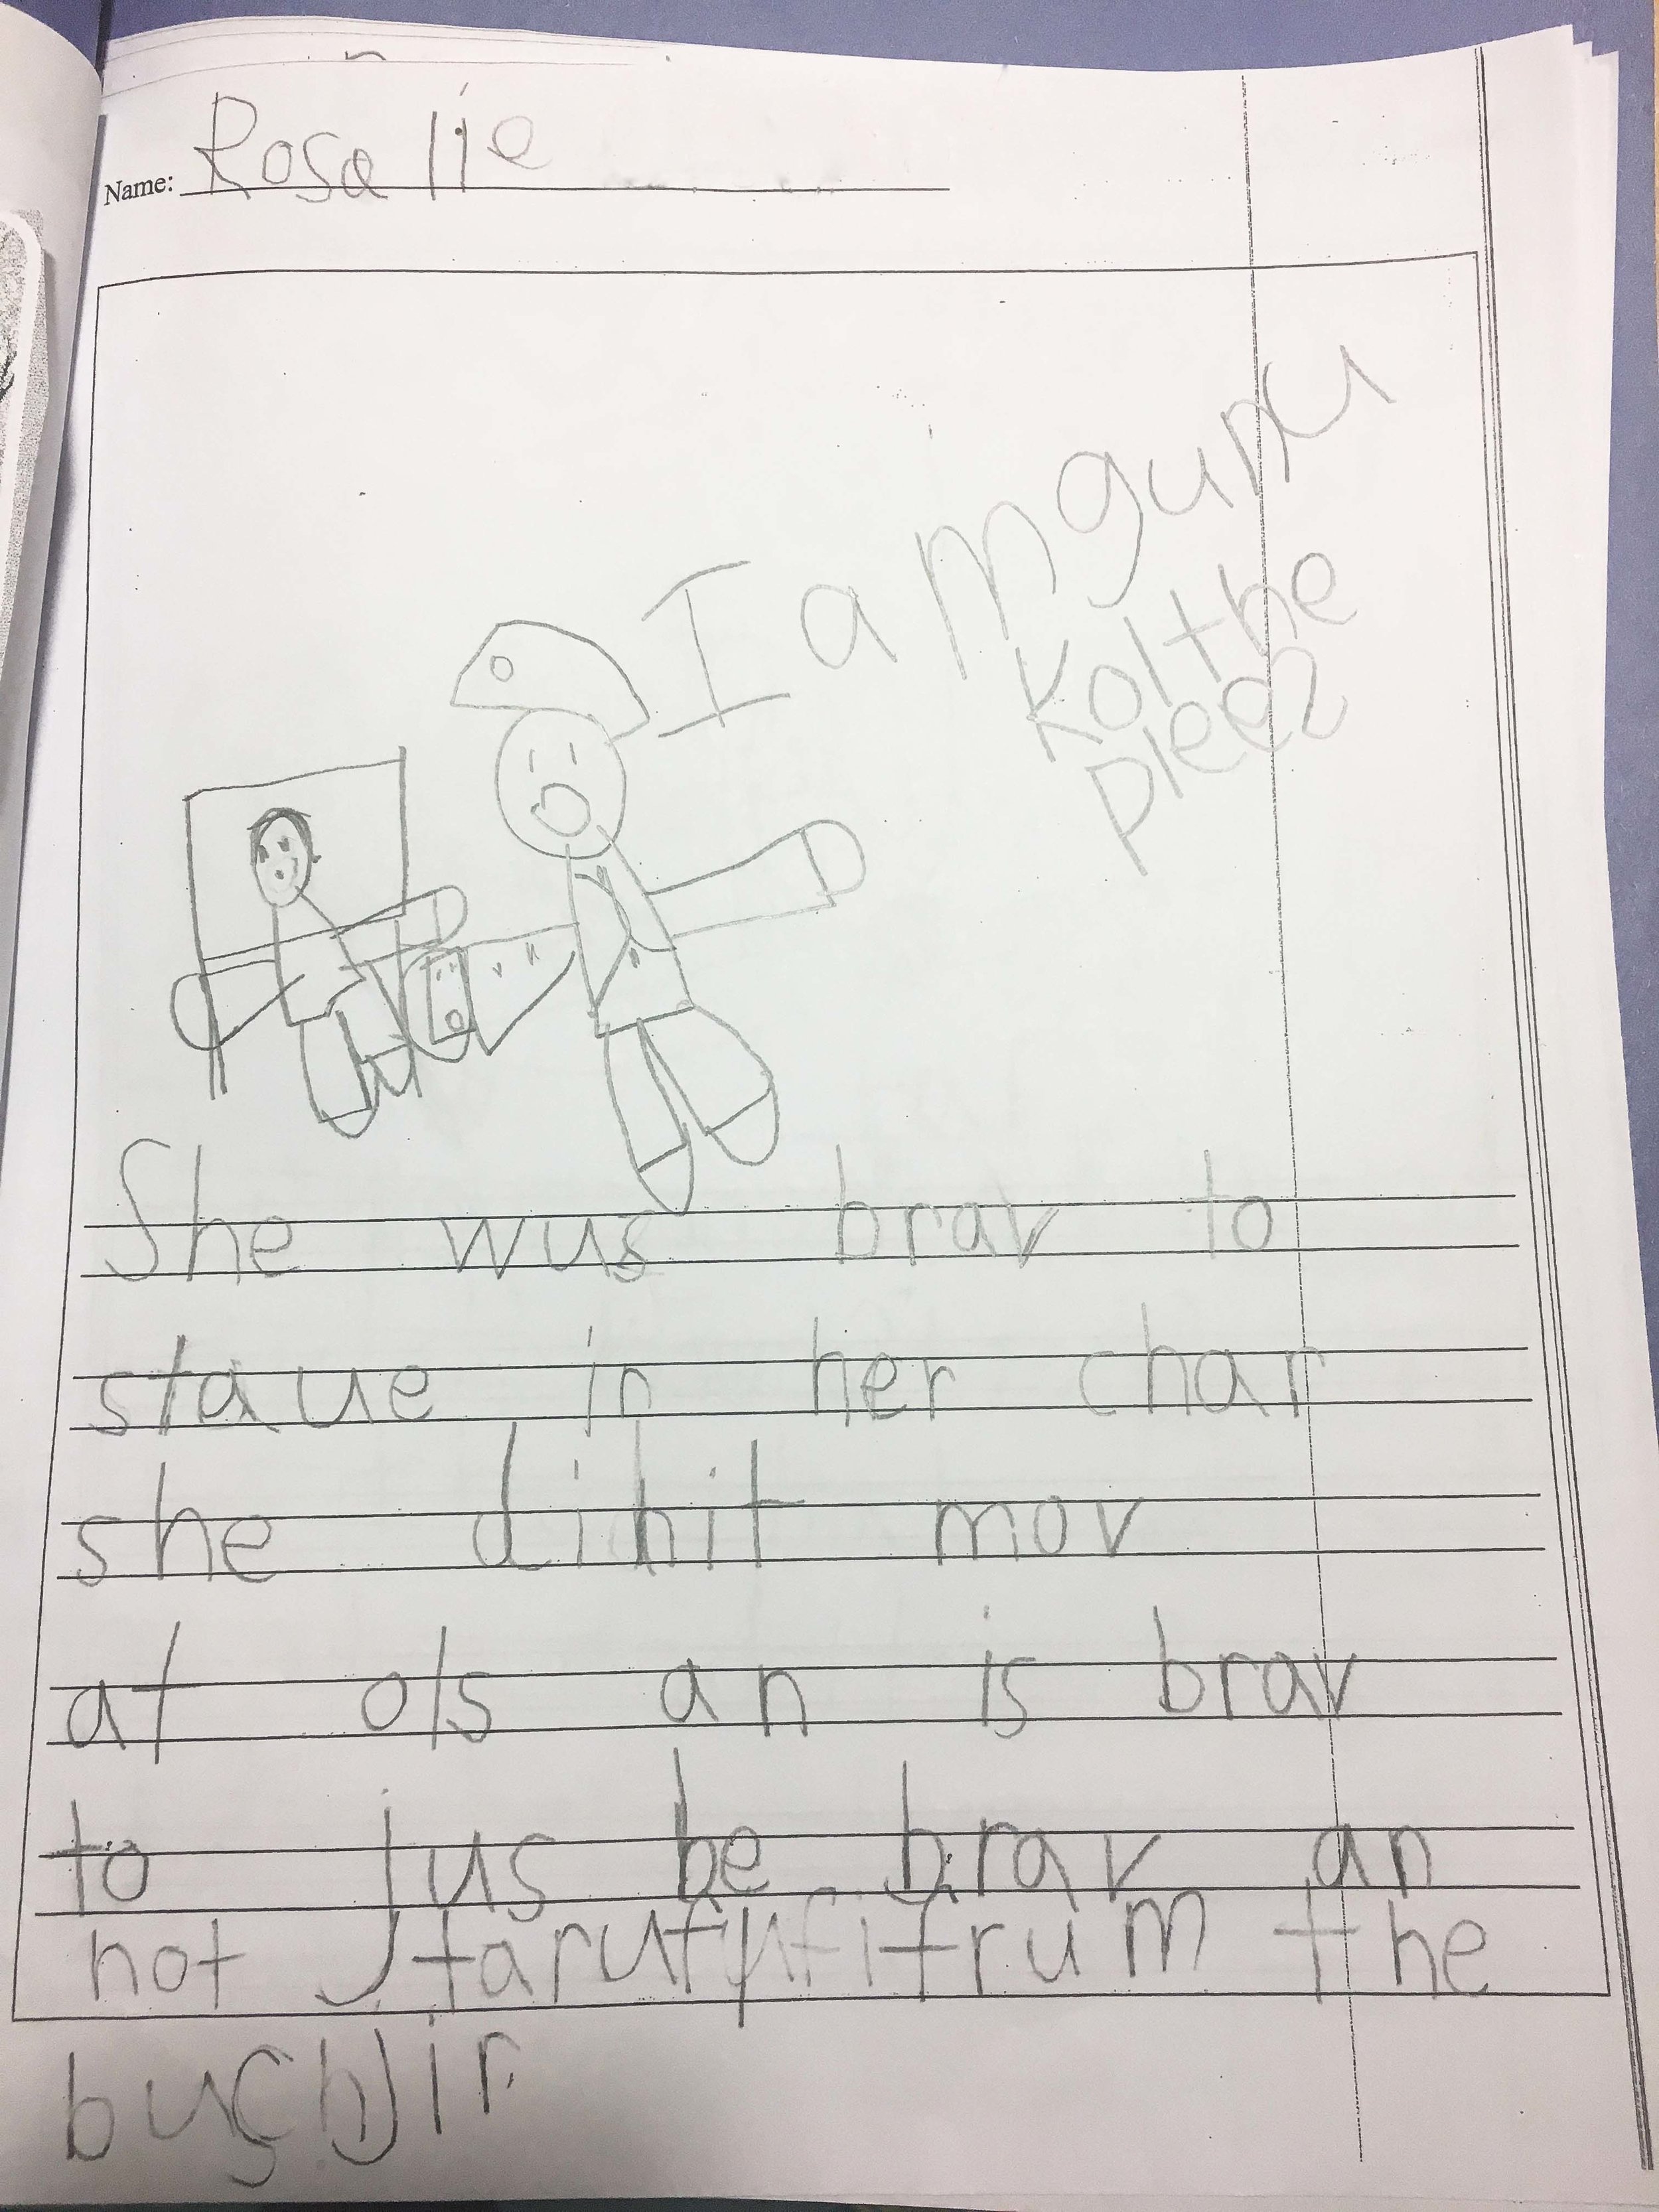 Name: Rosalie
I am gunu
Kol the
pleez
She wus brav to
staue in her char
she dihit mov
at ols an is brav
to jus be brav an
not frum the